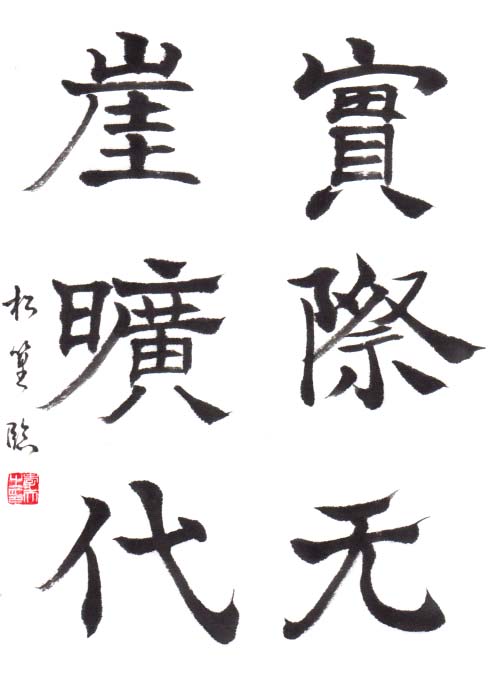 實際无
崖曠代
松篁臨